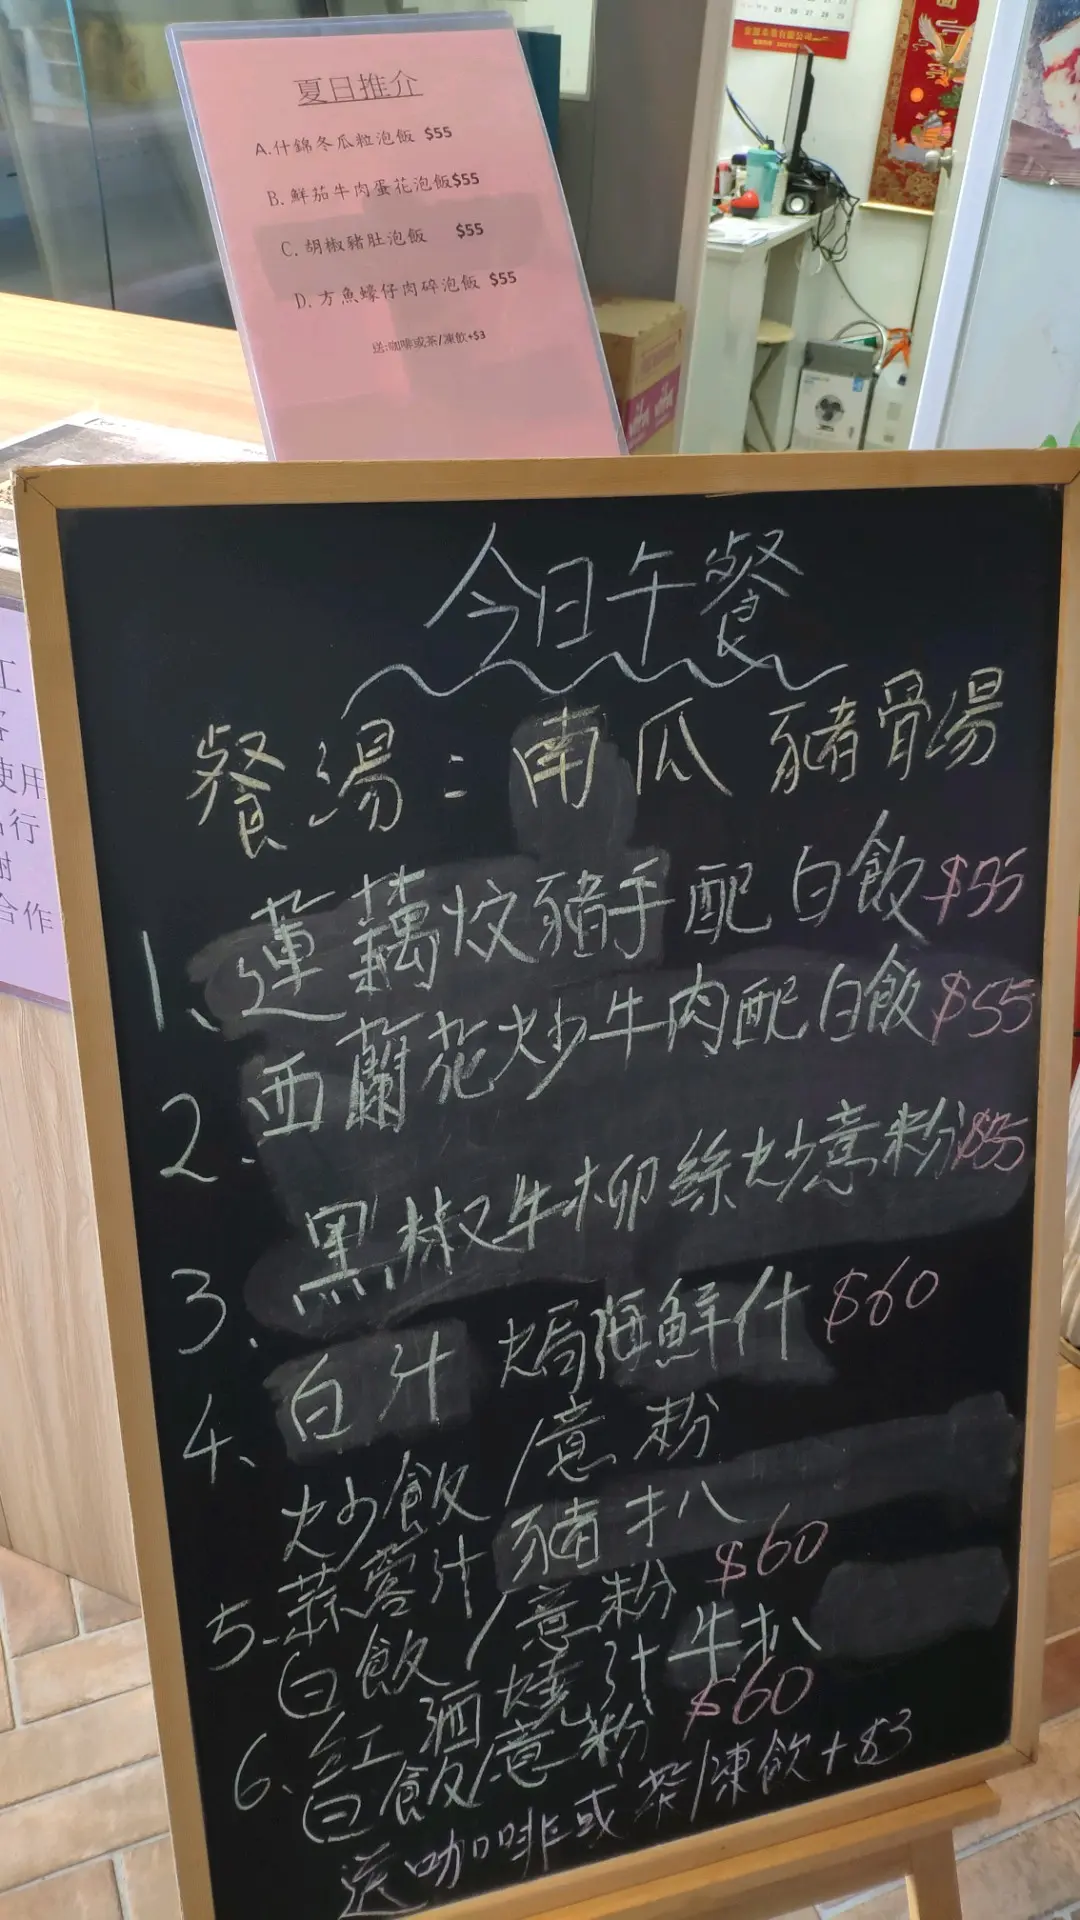 夏日推介
A.什錦冬瓜粒泡飯 $55
B.鮮茄牛肉蛋花泡飯$55
C.胡椒豬肚泡飯 $55
D.方魚蠔仔肉碎泡飯 $55
送:咖啡或茶/凍飲+$3
工
使用
行
合作
今日午餐
餐湯：南瓜豬骨湯
1、蓮藕炆豬手配白飯$55
2.西蘭花炒牛肉配白飯$55
3.黑椒牛柳絲炒意粉$55
4、白汁焗海鮮什$60
炒飯/意粉
5.蒜蓉汁豬扒
白飯/意粉 $60
6、紅酒燒汁牛扒
白飯/意粉 $60
送咖啡或茶/凍飲+$3